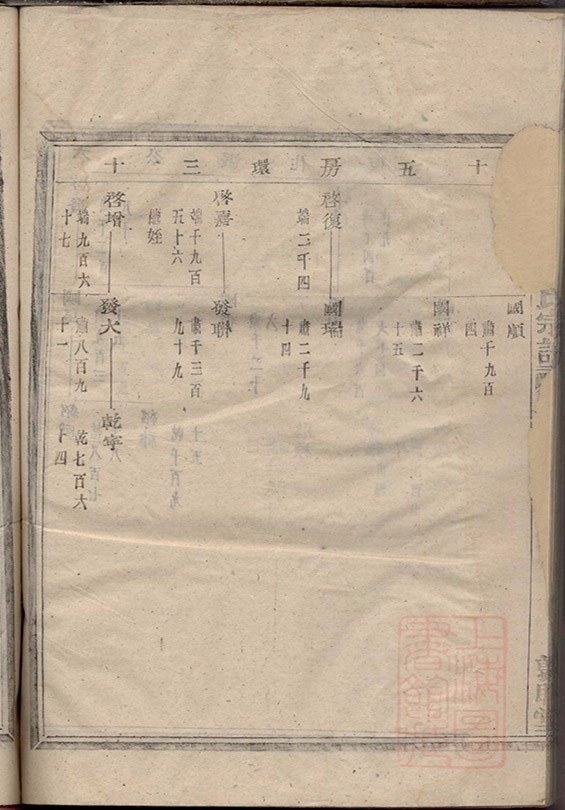 十五房環三十
國順
肅千九百
四
國祥
肅二千六
十五
啓復
瑞二千四
國瑞
肅二千九
十四
啓嘉
瑞千九百
五十六
繼姪
發聯
肅千三百
九十九
啓增
瑞九百六
十七
發大
肅八百九
十一
乾寧
乾七百六
十四
氏宗譜